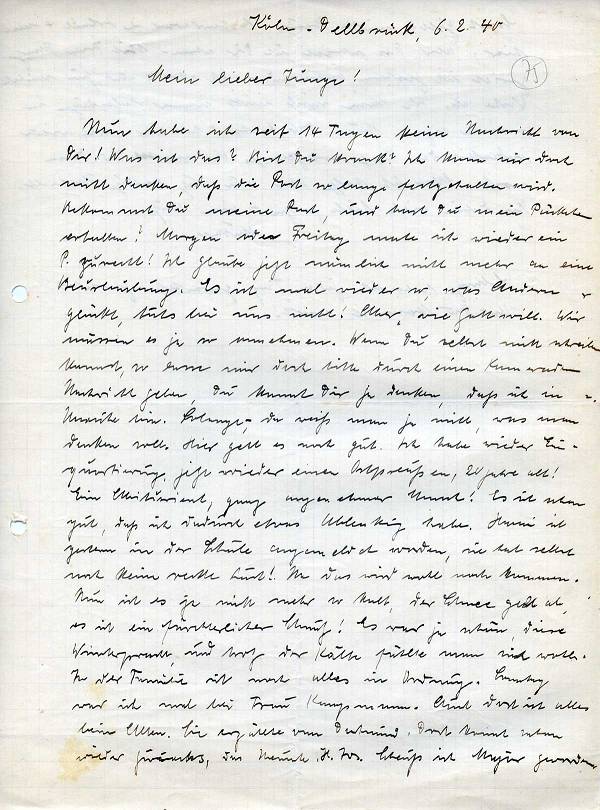 Köln-Dellbrück, 6.2.40
75
Mein lieber Junge!
Nun habe ich seit 14 Tagen keine Nachricht von
Dir! Was ist das? Bist Du krank? Ich kann mir doch
nicht denken, daß die Post so lange festgehalten wird.
Bekommst Du meine Post, und hast Du mein Päckchen
erhalten? Morgen oder Freitag mache ich wieder ein
P. zurecht! Ich glaube jetzt nämlich nicht mehr an eine
Beurlaubung. Es ist mal wieder so, was Andern
glückt, tuts bei uns nicht! Aber, wie Gott will. Wir
müssen es ja so annehmen. Wenn Du selbst nicht schreiben
kannst, so lasse mir doch bitte durch einen Kameraden
Nachricht geben, Du kannst Dir ja denken, daß ich in
Unruhe bin. Solange, da weiß man ja nicht, was man
denken soll. Hier geht es noch gut. Ich habe wieder Ein-
quartierung, jetzt wieder einen Ostpreußen, 20 Jahre alt!
Ein Abiturient, ganz angenehmer Mensch! Es ist schon
gut, daß ich dadurch etwas Ablenkung habe. ist
gestern in der Schule angemeldet worden, sie hat selbst
noch keine rechte Lust! Na das wird wohl noch kommen.
Nun ist es ja nicht mehr so kalt, der Schnee geht ab,
es ist ein fürchterlicher Matsch! Es war ja schön, diese
Winterpracht, und trotz der Kälte fühlte man sich wohl.
In der Familie ist noch alles in Ordnung. Sonntag
war ich mal bei Frau Auch dort ist alles
beim Alten. Sie erzählte von Dortmund. Dort kommt schon
wieder das Neunte. H. W. ist Major geworden,